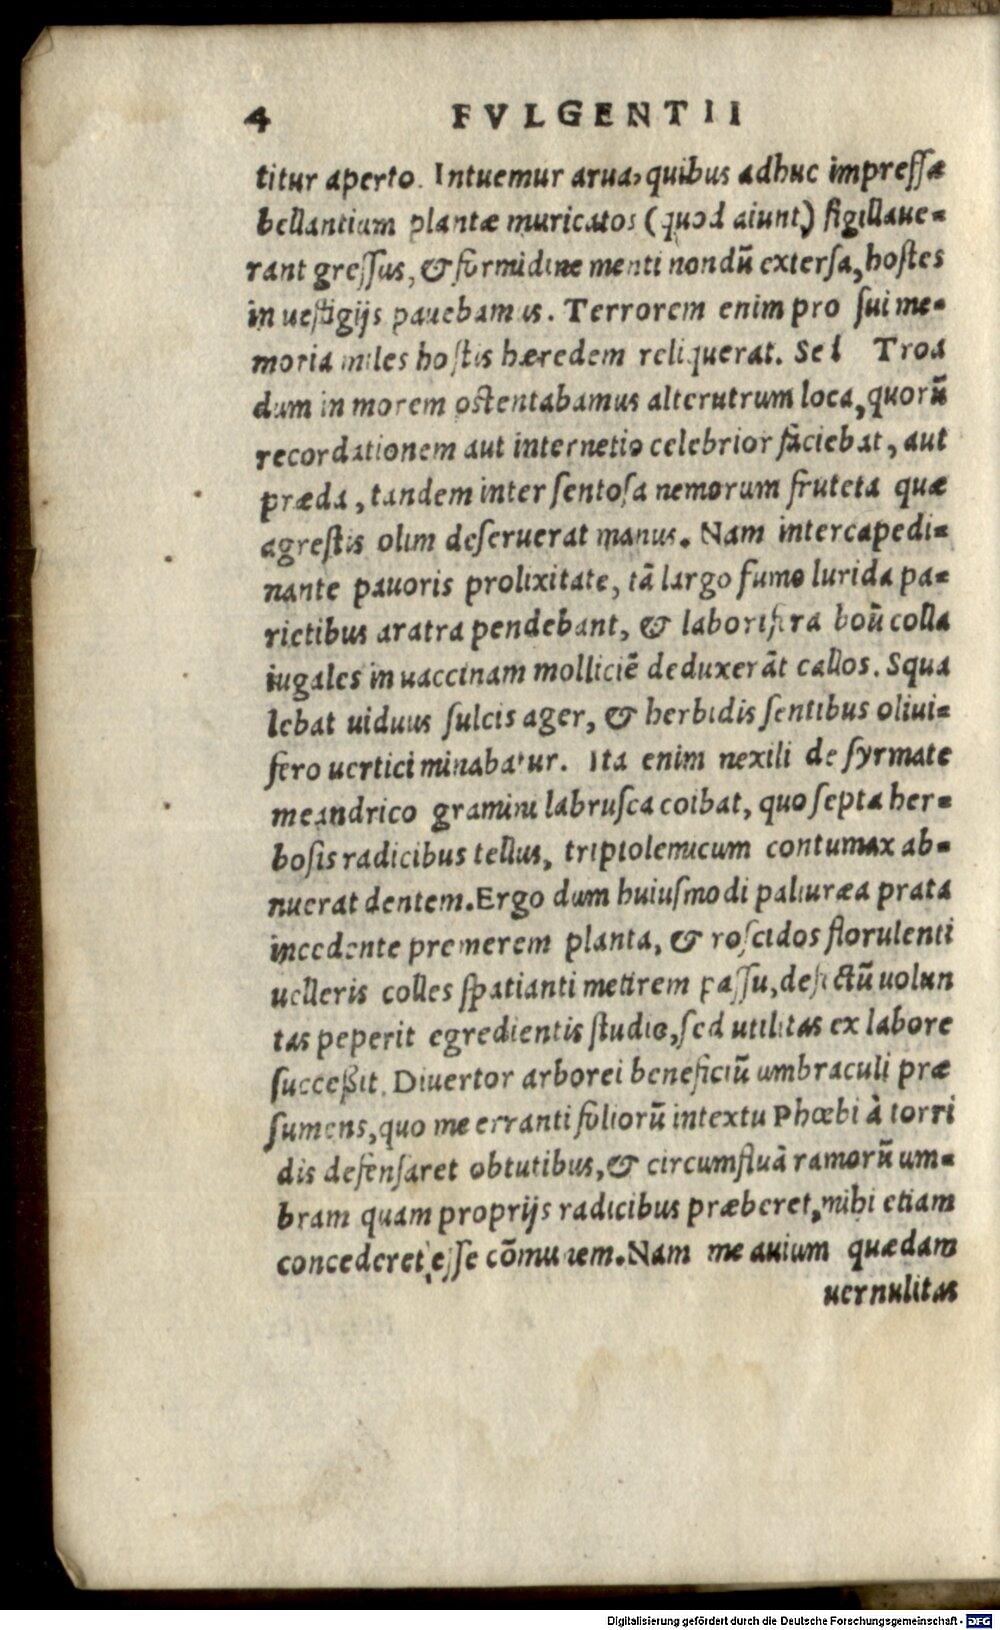 4 FVLGENTII
titur aperto. Intuemur arua, quibus adhuc impreſſæ
bellantium plantæ muricatos (quod aiunt) ſigillaue=
rant greſſus, & formidine menti nondū exterſa, hoſtes
in ueſtigijs pauebamus. Terrorem enim pro ſui me=
moria miles hoſtis hæredem reliquerat. Sed Troa
dum in morem oſtentabamus alterutrum loca, quorū
recordationem aut internetio celebrior faciebat, aut
præda, tandem inter ſentoſa nemorum fruteta quæ
agreſtis olim deſeruerat manus. Nam intercapedi=
nante pauoris prolixitate, tā largo fumo lurida pa=
rietibus aratra pendebant, & laborifera boū colla
iugales in uaccinam molliciē deduxerāt callos. Squa
lebat uiduus ſulcis ager, & herbidis ſentibus oliui=
fero uertici minabatur. Ita enim nexili de ſyrmate
meandrico gramini labruſca coibat, quo ſepta her=
boſis radicibus tellus, triptolemicum contumax ab=
nuerat dentem. Ergo dum huiuſmodi paliuræa prata
incedente premerem planta, & roſcidos florulenti
uelleris colles ſpatianti metirem paſſu, defectū uolun
tas peperit egredientis ſtudio, ſed utilitas ex labore
ſucceßit. Diuertor arborei beneficiū umbraculi præ
ſumens, quo me erranti foliorū intextu Phœbi à torri
dis defenſaret obtutibus, & circumfluā ramorū um=
bram quam proprijs radicibus præberet, mihi etiam
concederet eſſe cōmunem. Nam me auium quædam
uernulitas
Digitalisierung gefördert durch die Deutsche Forschungsgemeinschaft - DFG